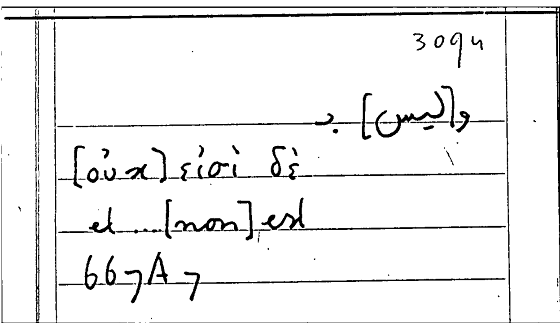 3094
و[ليس] ..
[οὐχ] εἰσὶ δὲ
et ... [non] est
667A7